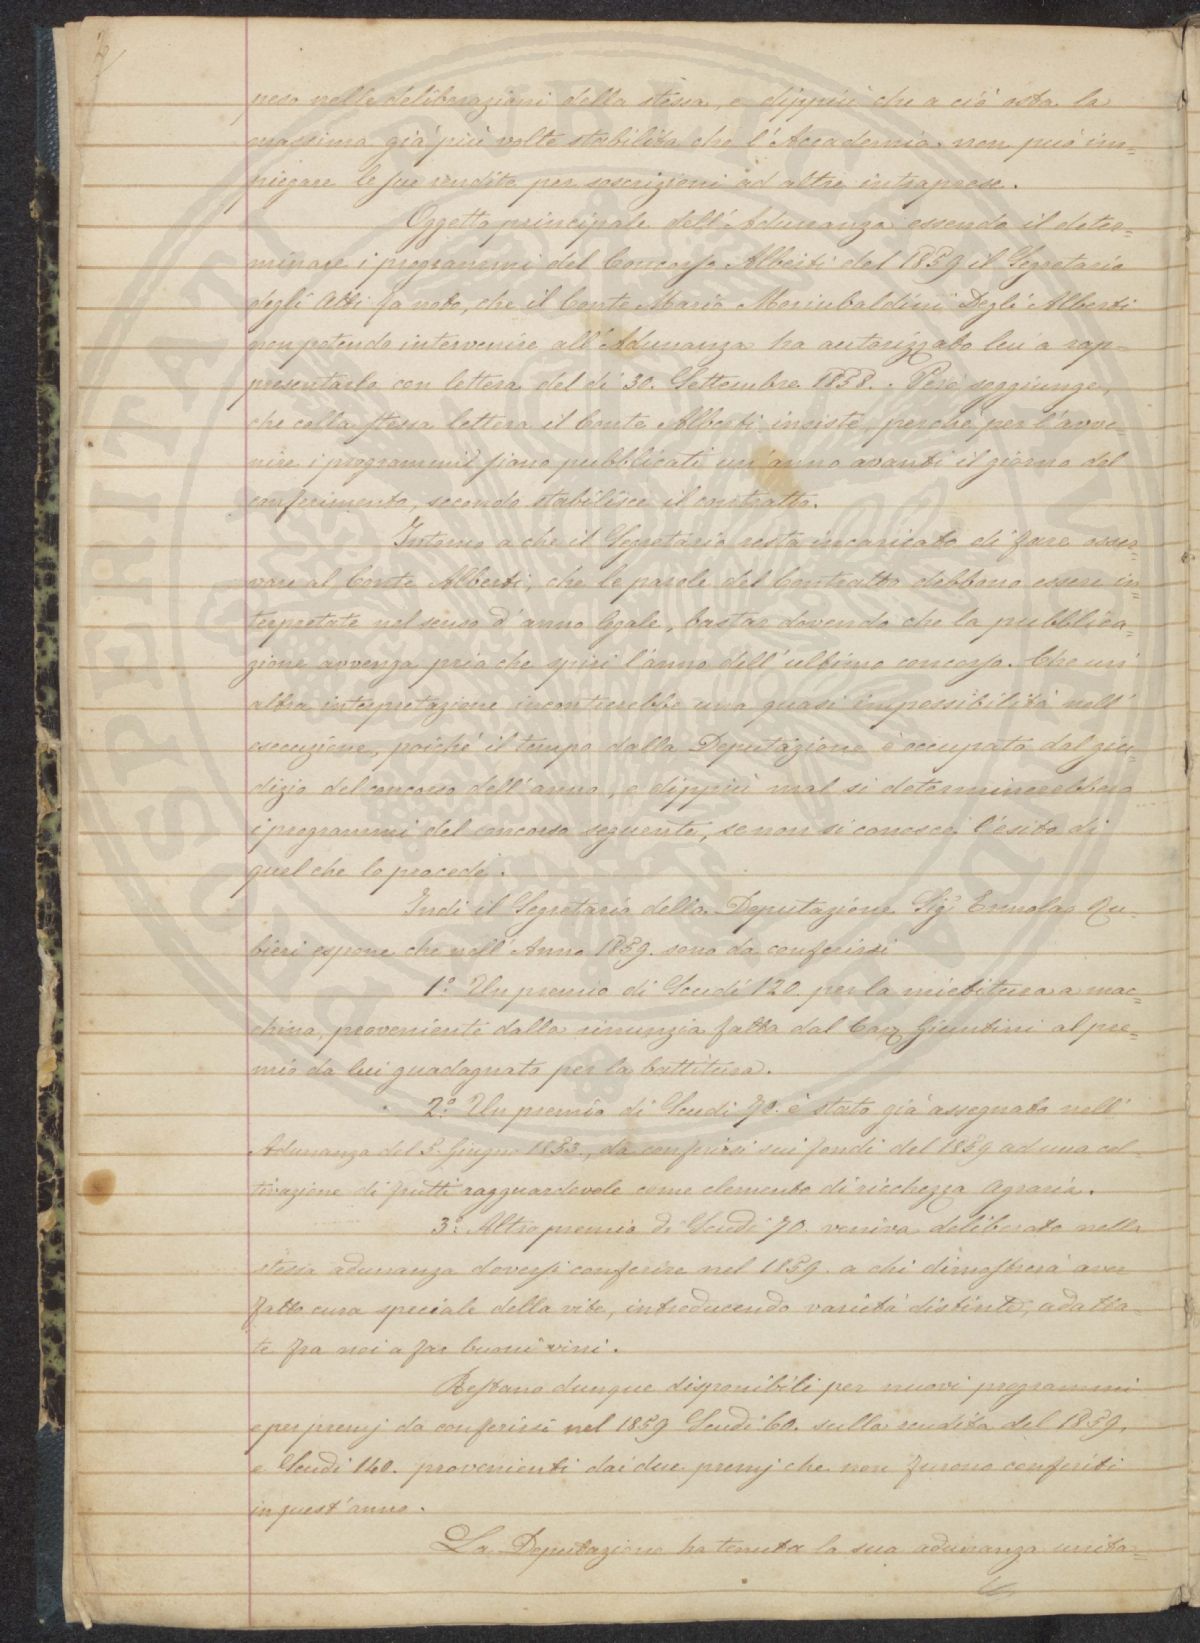 2
peso nelle deliberazioni della stessa, e dippiù che a ciò osta la
massima già più volte stabilita che l'Accademia non può im=
piegare le sue rendite per soscrizioni ad altre intraprese.
Oggetto principale dell'Adunanza essendo il deter=
minare i programmi del Concorso Alberti del 1859 il Segretario
degli Atti fa noto, che il Conte Mario Moriubaldini Degli Alberti
non potendo intervenire all'Adunanza ha autorizzato lui a rap=
presentarlo con lettera del dì 30. Settembre 1858. Però soggiunge,
che colla stessa lettera il Conte Alberti insiste, perchè per l'avve=
nire i programmi siano pubblicati un'anno avanti il giorno del
conferimento, secondo stabilisce il contratto.
Intorno a che il Segretario resta incaricato di fare osser=
vare al Conte Alberti, che le parole del Contratto debbono essere in=
terpretate nel senso d'anno legale, bastar dovendo che la pubblica=
zione avvenga pria che spiri l'anno dell'ultimo concorso. Che un'
altra interpretazione incontrerebbe una quasi impossibilità nell'
esecuzione, poichè il tempo dalla Deputazione è occupato dal giu=
dizio del concorso dell'anno, e dippiù mal si determinerebbero
i programmi del concorso seguente, se non si conosce l'esito di
quel che lo precede.
Indi il Segretario della Deputazione Sig.r Ermolao Ru=
bieri espone che nell'Anno 1859. sono da conferirsi
1.° Un premio di Scudi 120. per la mietitura a mac=
china, proveniente dalla rinunzia fatta dal Cav. Giuntini al pre=
mio da lui guadagnato per la battitura.
2.° Un premio di Scudi 70. è stato già assegnato nell'
Adunanza del 5. Giugno 1853., da conferirsi sui fondi del 1859 ad una col=
tivazione di frutti ragguardevole come elemento di ricchezza agraria.
3.° Altro premio di Scudi 70. veniva deliberato nella
stessa adunanza doversi conferire nel 1859. a chi dimostrerà aver
fatto cura speciale della vite, introducendo varietà distinte, adatta=
te fra noi a far buoni vini.
Restano dunque disponibili per nuovi programmi
e per premj da conferirsi nel 1859 Scudi 60. sulla rendita del 1859,
e Scudi 140. provenienti dai due premj che non furono conferiti
in quest'anno.
La Deputazione ha tenuta la sua adunanza unita=